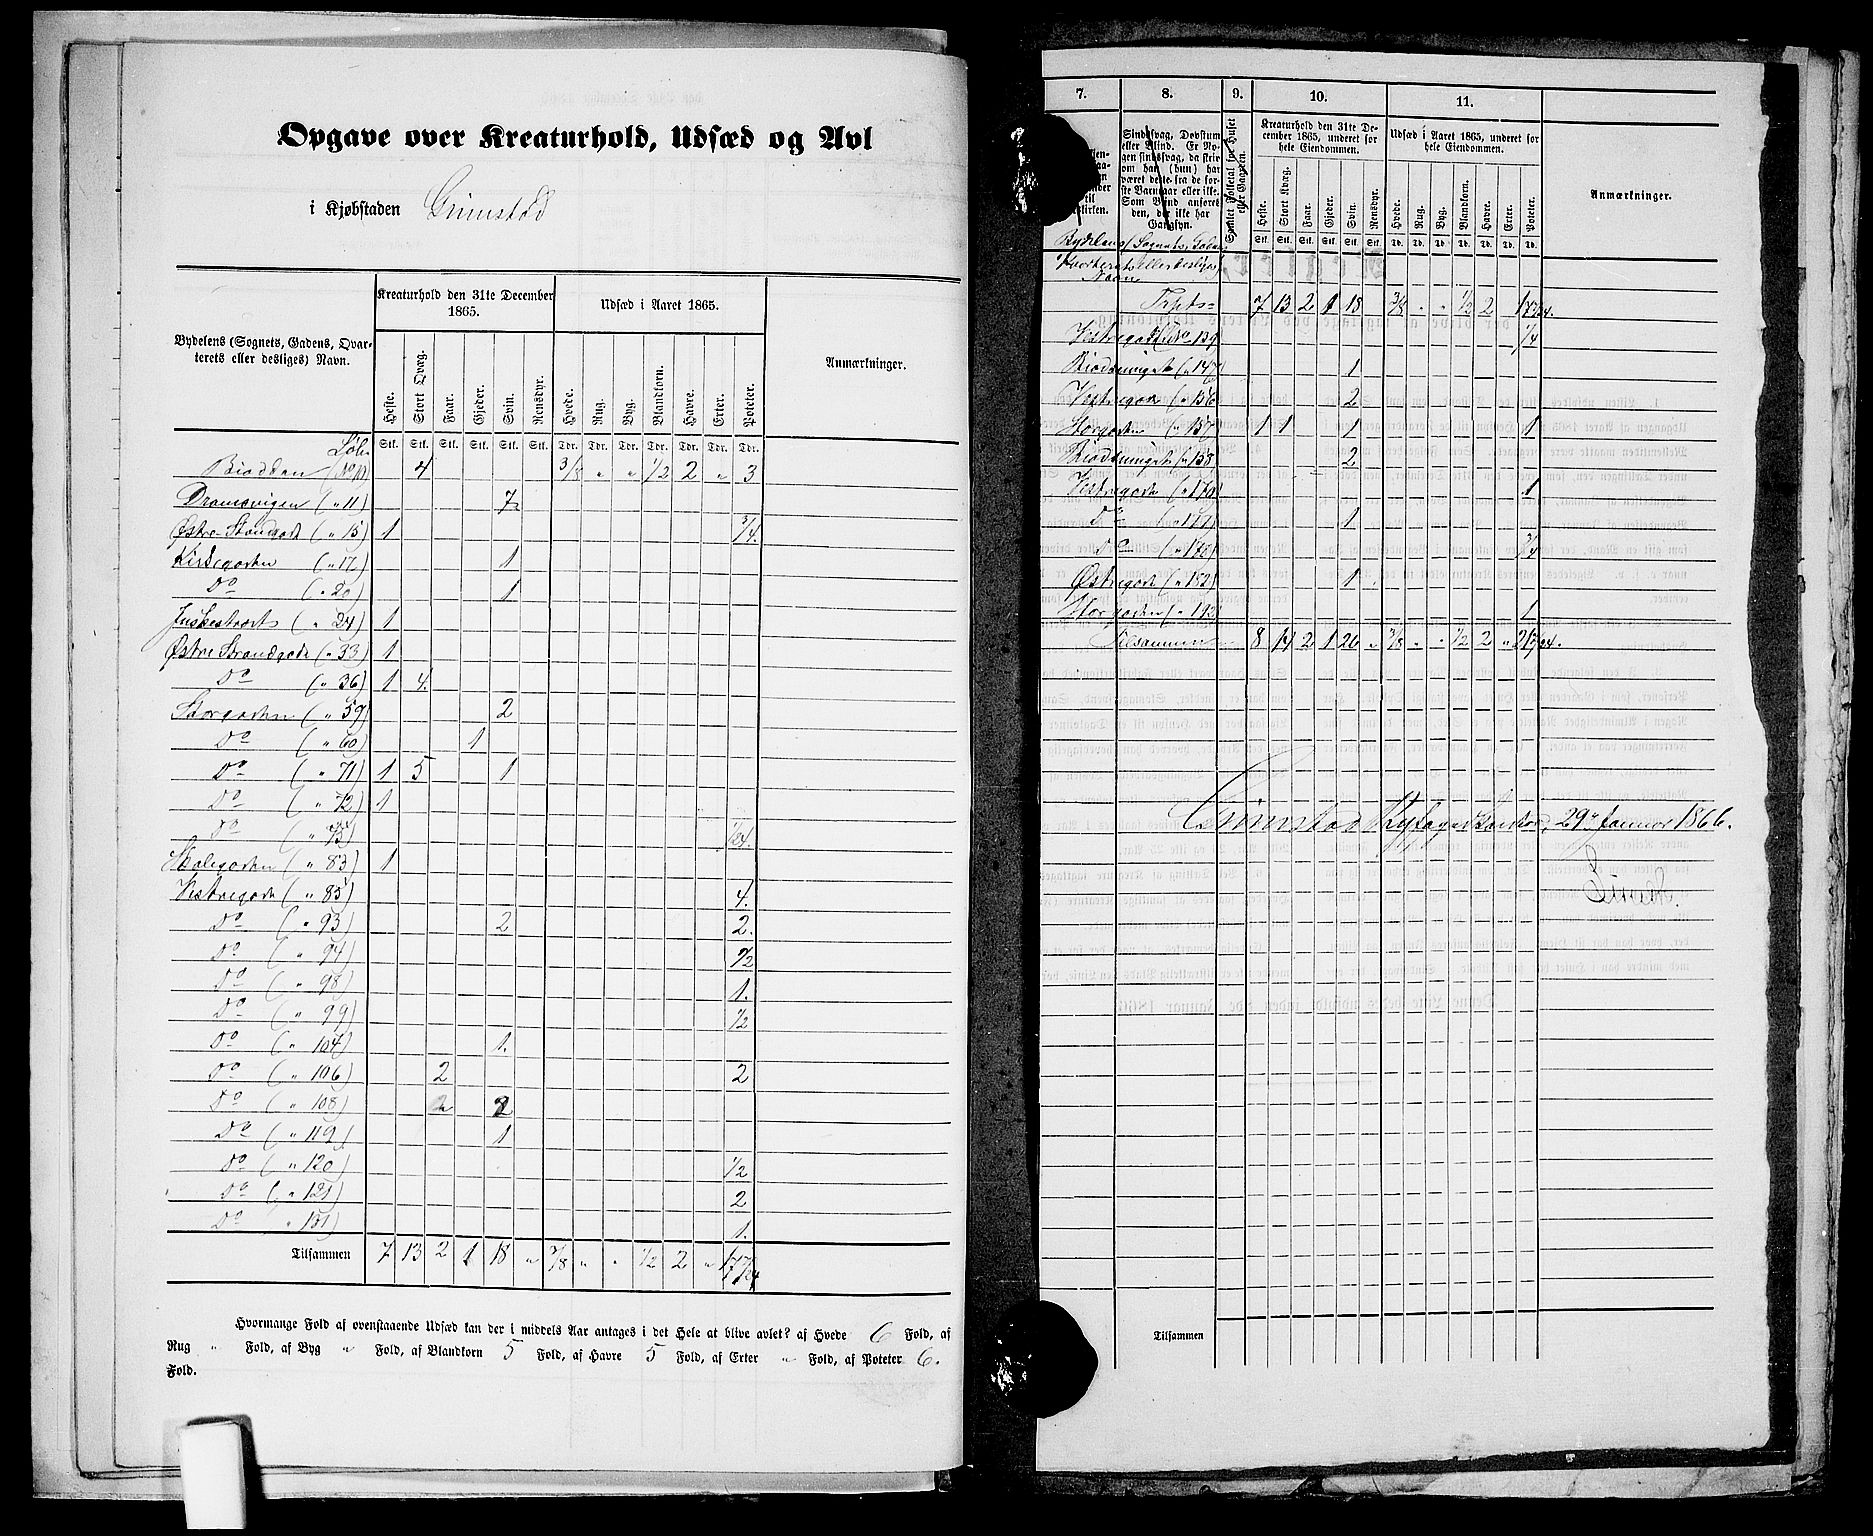 Opgave over Kreaturhold, Udsæd og Avl
i Kjøbstaden Grimstad
Bydelens (Sognets, Gadens, Qvar-
terets eller desliges) Navn.
Kreaturhold den 31te December
1865.
Udsæd i Aaret 1865.
Anmærkninger.
Heste. Stort Qvæg. Faar. Gjeder. Svin. Rensdyr. Hvede. Rug. Byg. Blandkorn. Havre. Erter. Poteter.
Stk. Stk. Stk. Stk. Stk. Stk. Tdr. Tdr. Tdr. Tdr. Tdr. Tdr. Tdr.
Biodden 4 3/8 " " 1/2 2 " 3
(" 11) 7
Østre Strandgade (" 15) 1 3/4.
Kirkegaden (" 17) 1
Do (" 20) 1
(" 24) 1
Østre Strandgade (" 33) 1
Do (" 36) 1 4.
Storgaden (" 59) 2
Do (" 60) 1
Do (" 71) 1 5 1
Do (" 72) 1
Do (" 75) 1/24.
Skolegaden (" 83) 1
Vestregade (" 85) 4.
Do (" 93) 2 2.
Do (" 94) 1/2
Do (" 98) 1.
Do (" 99) 1/2
Do (" 104) 1.
Do (" 106) 2 2
Do (" 108) 2
Do (" 119) 1
Do (" 120) 1/2
Do (" 121) 2
Do " 131) 1.
Tilsammen 7 13 2 1 18 " 3/8 " " 1/2 2 " 17 7/24
Hvormange Fold af ovenstaaende Udsæd kan der i middels Aar antages i det Hele at blive avlet? af Hvede 6 Fold, af
Rug " Fold, af Byg " Fold, af Blandkorn 5 Fold, af Havre 5 Fold, af Erter " Fold, af Poteter 6.
Fold.
7. 8. 9. 10. 11.
Sindssvag, Døvstum
eller Blind. Er No-
gen sindssvag, da skriv
om han (hun) har
været dette fra de før-
ste Barneaar eller ikke.
Som Blind anføres
den, der ikke har
Gangsyn.
Samlet Folketal for Huset
eller Gaarden.
Kreaturhold den 31te De-
cember 1865, underet for
hele Eiendommen.
Udsæd i Aaret 1865, underet for
hele Eiendommen.
Anmærkninger.
Heste. Stort Kvæg. Faar. Gjeder. Svin. Rensdyr. Hvede. Rug. Byg. Blandkorn. Havre. Erter. Poteter.
Stk. Stk. Stk. Stk. Stk. Stk. Td. Td. Td. Td. Td. Td. Td.
Bydelens (Sognets, Gadens,
Kvarterets eller desliges)
Navn
7 13 2 1 18 3/8 " " 1/2 2 17 7/24.
Vestregade (No 139 1/4
(" 147) 1
Vestregade (" 156 2
Storgaden (" 157) 1 1 1 1
(" 158) 2
Vestregade 1
Do 1
Do 3/4
Østregade (" 182) 1
Storgaden 1
Tilsammen 8 14 2 1 26 " 3/8 " " 1/2 2 "
Grimstad 29de Januar 1866.
Tilsammen